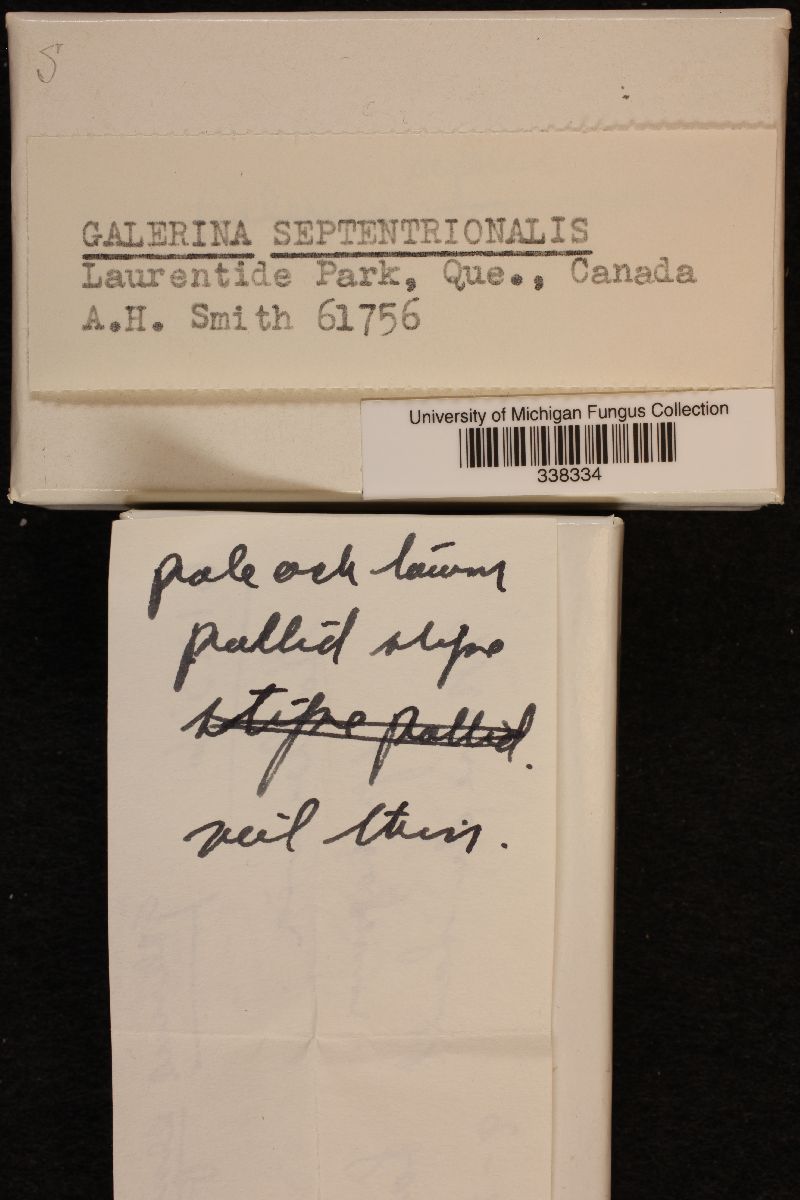 S
GALERINA SEPTENTRIONALIS
Laurentide Park, Que., Canada
A.H. Smith 61756
University of Michigan Fungus Collection
338334
pale och tawny
pallid stipe
stipe pallid.
veil thin.